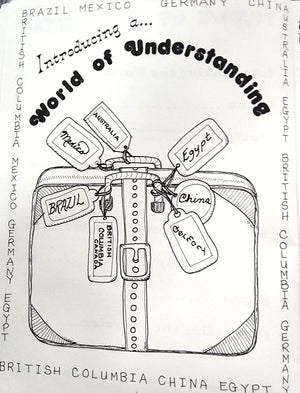 BRAZIL MEXICO GERMANY CHINA
AUSTRALIA EGYPT BRITISH COLUMBIA GERMANY
BRITISH COLUMBIA MEXICO GERMANY EGYPT
Introducing a...
World of Understanding
AUSTRALIA
Mexico
Egypt
BRAZIL
China
BRITISH
COLUMBIA
CANADA
BRITISH COLUMBIA CHINA EGYPT